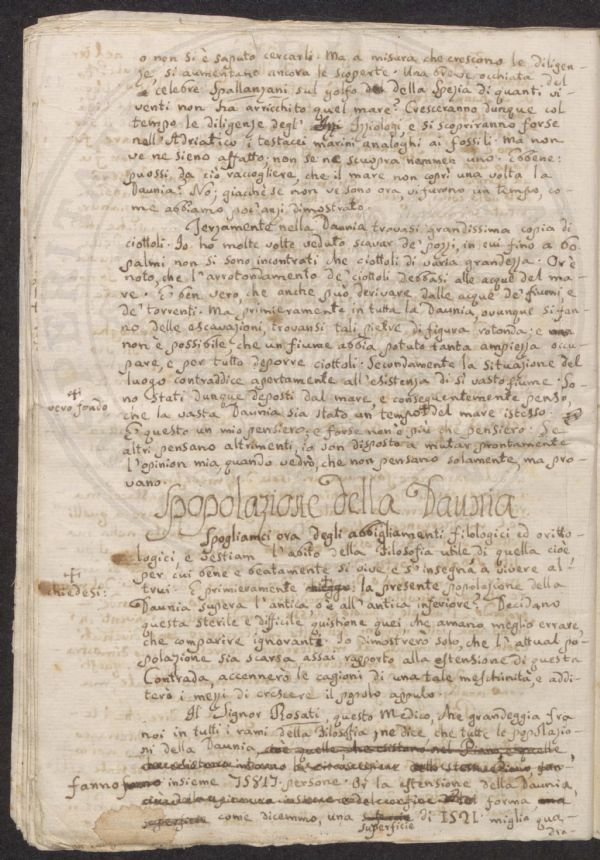 o non si è saputo cercarli. Ma, a misura che crescono le diligen-
ze, si aumentano ancora le scoperte. Una breve occhiata del
celebre Spallanzani sul golfo della Spezia di quanti vi-
venti non ha arricchito quel mare? Cresceranno dunque col
tempo le diligenze degl' Ittiologi e si scopriranno forse
nell'Adriatico i testacei marini analoghi ai fossili. Ma non
ve ne sieno affatto; non se ne scuopra nemmen uno. Ebbene:
puossi da ciò raccogliere, che il mare non coprì una volta la
Daunia? No; giacchè se non ve sono ora, vi furono un tempo, co-
me abbiamo poc'anzi dimostrato.
Terzamente nella Daunia trovasi grandissima copia di
ciottoli. Io ho molte volte veduto scavar de' pozzi, in cui fino a 60
palmi non si sono incontrati che ciottoli di varia grandezza. Or è
noto, che l'arrotondamento de' ciottoli debbasi alle acque del ma-
re. È ben vero che anche può derivare dalle acque de' fiumi e
de' torrenti. Ma primieramente in tutta la Daunia, ovunque si fan-
no delle escavazioni, trovansi tali pietre di figura rotonda: e
non è possibile che un fiume abbia potuto tanta ampiezza occu-
pare, e per tutto deporre ciottoli. Secondamente la situazione del
luogo contraddice apertamente all'esistenza di sì vasto fiume. So-
no stati dunque deposti dal mare, e conseguentemente penso,
vero fondo
che la vasta Daunia sia stato un tempo del mare istesso.
È questo un mio pensiero, e forse non è più che pensiero. Se
altri pensano altrimenti, io son disposto a mutar prontamente
l'opinion mia quando vedrò, che non pensano solamente, ma pro-
vano.
Spopolazione della Daunia
Spogliamci ora degli abbigliamenti filologici ed oritto-
logici, e vestiam l'abito della Filosofia utile di quella cioè
per cui bene e beatamente si vive e s'insegna a vivere al-
chiedesi:
trui. E primieramente la presente popolazione della
Daunia supera l'antica, o è all'antica inferiore? Decidano
questa sterile e difficile quistione quei che amano meglio errare,
che comparire ignoranti. Io dimostrerò solo, che l'attual po-
polazione sia scarsa assai rapporto alla estensione di questa
Contrada, accennerò le cagioni di una tale meschinità, e addi-
terò i mezzi di crescere il popolo appulo.
Il Signor Rosati, questo Medico, che grandeggia fra
noi in tutti i rami della Filosofia, ne dice che tutte le popolazio-
ni della Daunia,
fanno insieme 75817 persone. Or la estensione della Daunia
forma
come dicemmo, una superficie di 1521 miglia qua-
dra-